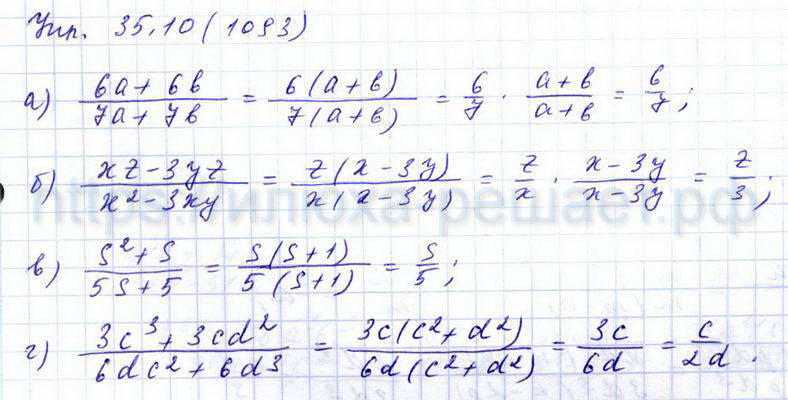 Упр. 35.10 (1093)
а) (6a + 6b)/(7a + 7b) = (6(a + b))/(7(a + b)) = 6/7 · (a + b)/(a + b) = 6/7;
б) (xz - 3yz)/(x² - 3xy) = (z(x - 3y))/(x(x - 3y)) = z/x · (x - 3y)/(x - 3y) = z/3;
https://илюха-решает.рф
в) (s² + s)/(5s + 5) = (s(s + 1))/(5(s + 1)) = s/5;
г) (3c³ + 3cd²)/(6dc² + 6d³) = (3c(c² + d²))/(6d(c² + d²)) = 3c/6d = c/2d.